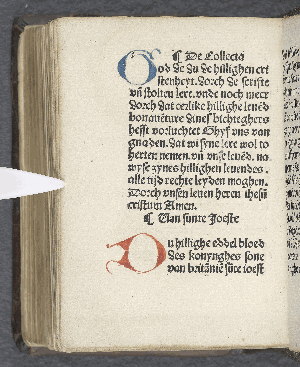 ¶ De Collecta
God de du de hillighen cri
stenheyt. dorch de scrifte
vn̄ stolten lere. vnde noch meer
dorch dat erlike hillighe leuēd
bonauēture dines bichteghers
hefst vorluchtet Ghyf vns van
gnaden. dat wi syne lere wol to
herten nemen. vn̄ vnse leuēd. na
wyse synes hillighen leuendes.
alle tijd rechte leyden moghen.
Dorch vnsen leuen heren ihesū
cristum Amen.
¶ Van sunte Joeste
Du hillighe eddel bloed
des konynghes sone
van britāniē sūte ioest